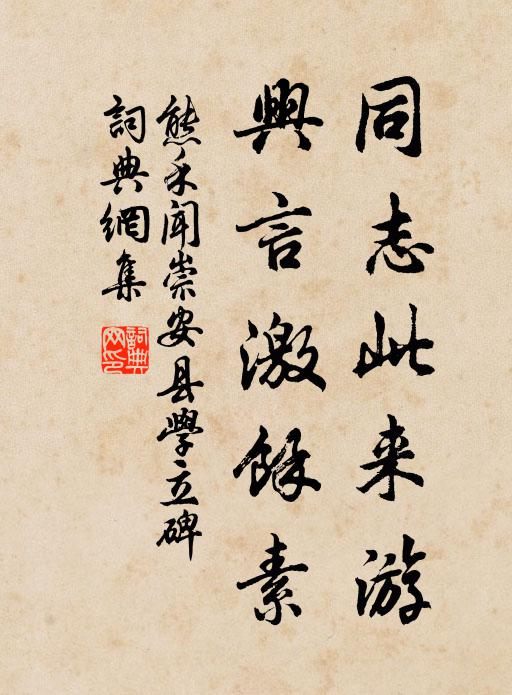 同志此来游
興言激餘素
熊禾闻崇安县學立碑
詞典網集
詞典网印